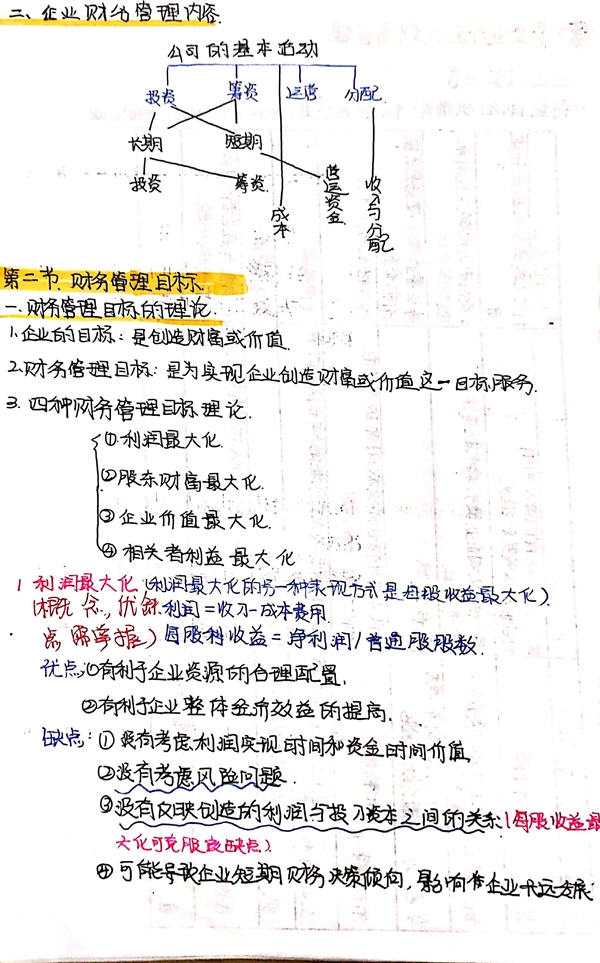 二、企业财务管理内容.
公司的基本活动
投资 筹资 运营 分配
长期 短期
投资 筹资 成本 营运资金 收入与分配
第二节.财务管理目标.
一.财务管理目标的理论.
1.企业的目标:是创造财富或价值.
2.财务管理目标:是为实现企业创造财富或价值这一目标服务.
3.四种财务管理目标理论.
①利润最大化.
②股东财富最大化.
③企业价值最大化.
④相关者利益最大化
1 利润最大化(利润最大化的另一种表现方式是每股收益最大化)
(概念,优缺 利润=收入-成本费用
点需掌握) 每股利收益=净利润/普通股股数.
优点:①有利于企业资源的合理配置.
②有利于企业整体经济效益的提高.
缺点:①没有考虑利润实现时间和资金时间价值
②没有考虑风险问题.
③没有反映创造的利润与投入资本之间的关系(每股收益最
大化可克服该缺点)
④可能导致企业短期财务决策倾向,影响企业长远发展